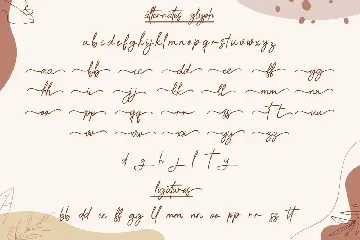 alternates glyph
a b c d e f g h i j k l m n o p q r s t u v w x y z
aa bb cc dd ee ff gg
hh ii jj kk ll mm nn
oo pp qq rr ss tt uu
vv ww xx yy zz
d g h j l t y
ligatures
bb dd ee ff gg ll mm nn oo pp rr ss tt